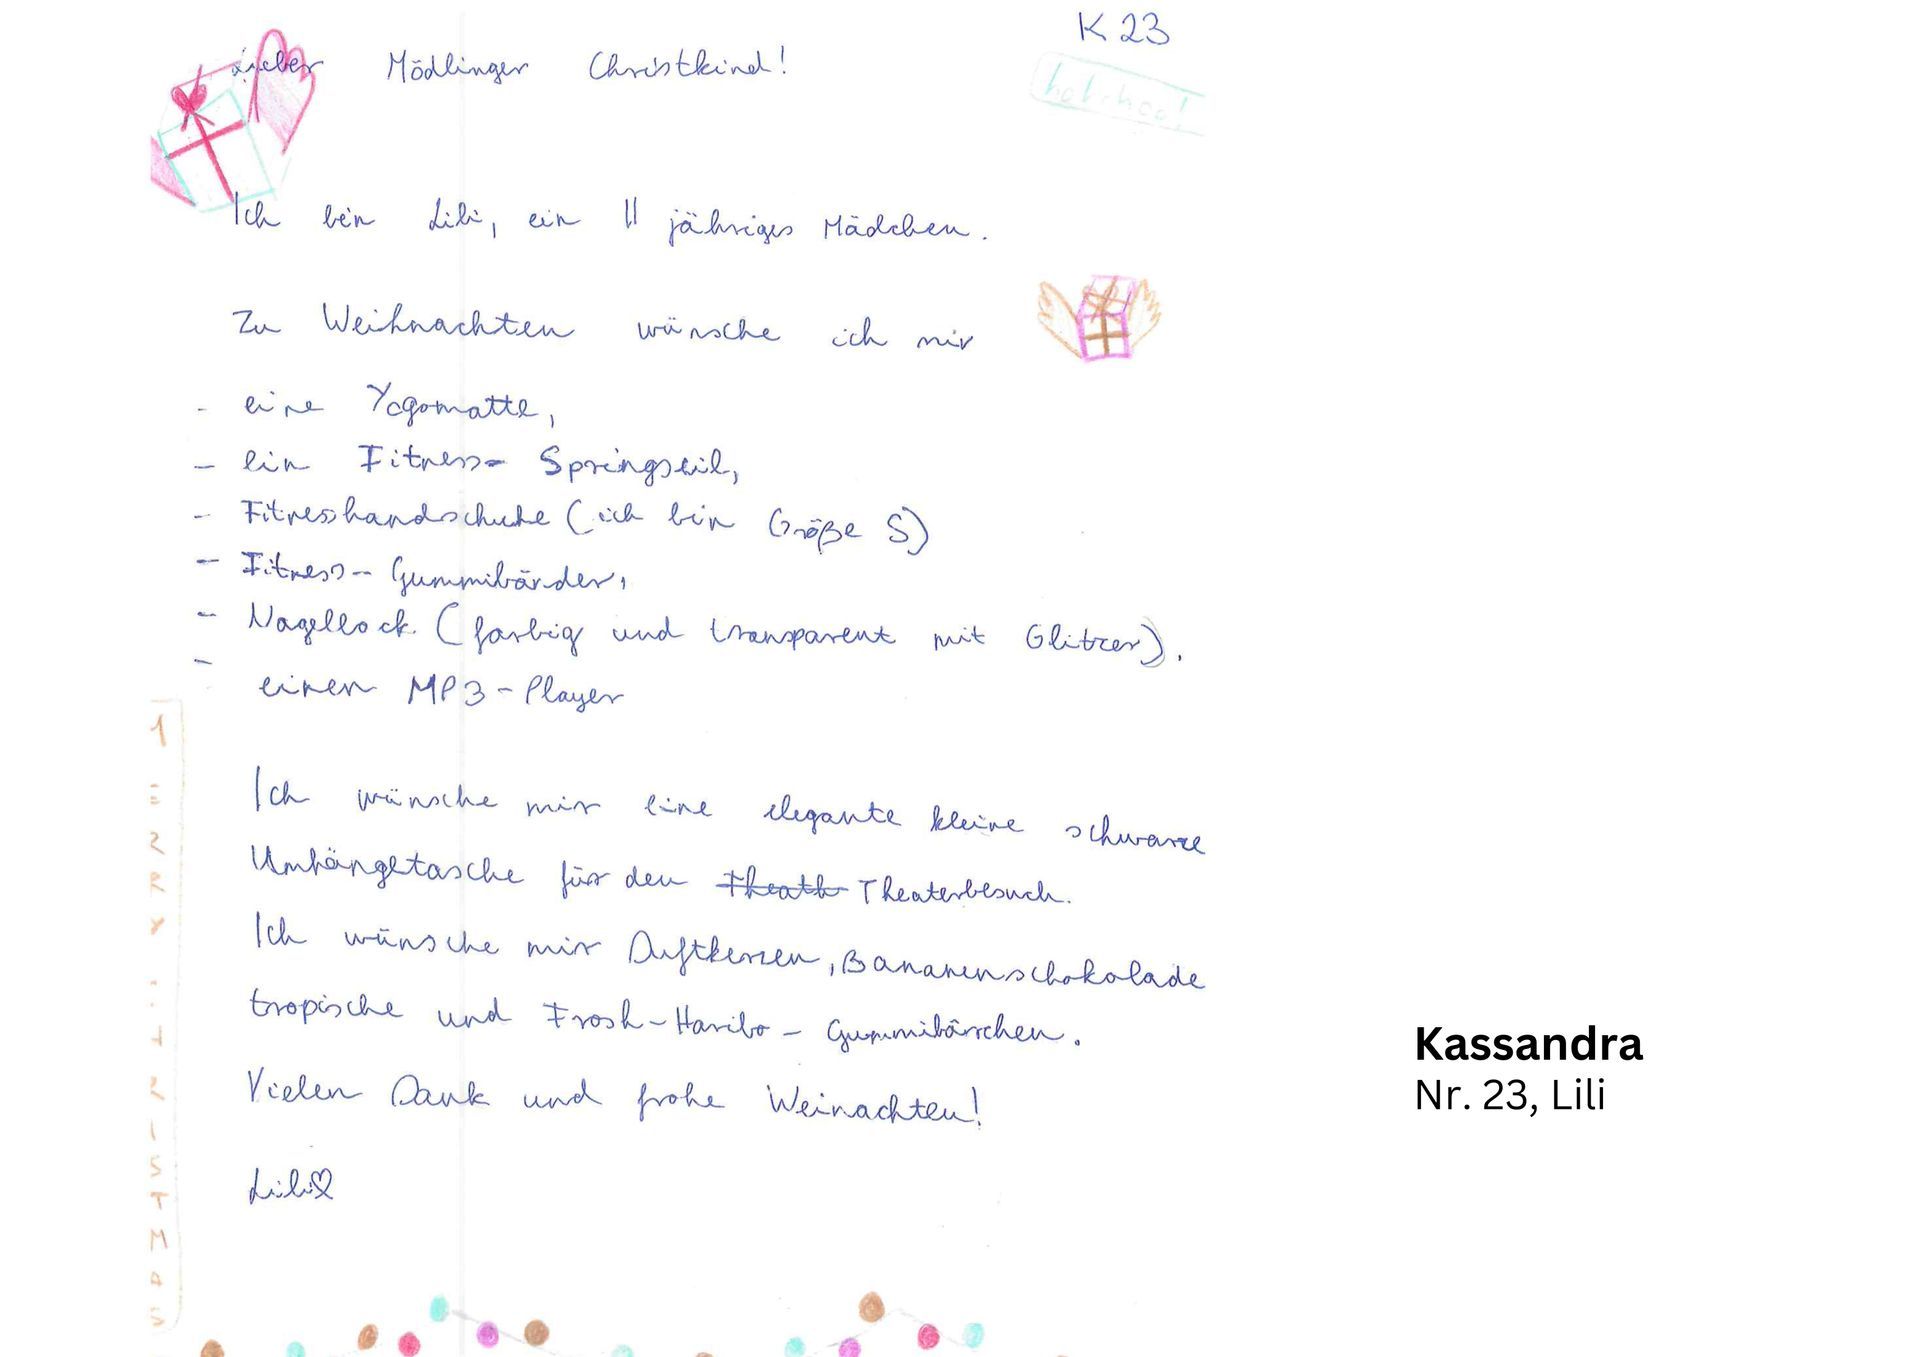 K 23
Lieber Mödlinger Christkind!
Ich bin Lili, ein 11 jähriges Mädchen.
Zu Weihnachten wünsche ich mir
- eine Yogamatte,
- ein Fitness- Springseil,
- Fitnesshandschuhe (ich bin Größe S)
- Fitness- Gummibänder,
- Nagellack (farbig und transparent mit Glitzer).
- einen MP3-Player
Ich wünsche mir eine elegante kleine schwarze
Umhängetasche für den Theath Theaterbesuch.
Ich wünsche mir Duftkerzen, Bananenschokolade
tropische und Frosh-Haribo-Gummibärchen.
Vielen Dank und frohe Weinachten!
Lili
CHRISTMAS
Kassandra
Nr. 23, Lili